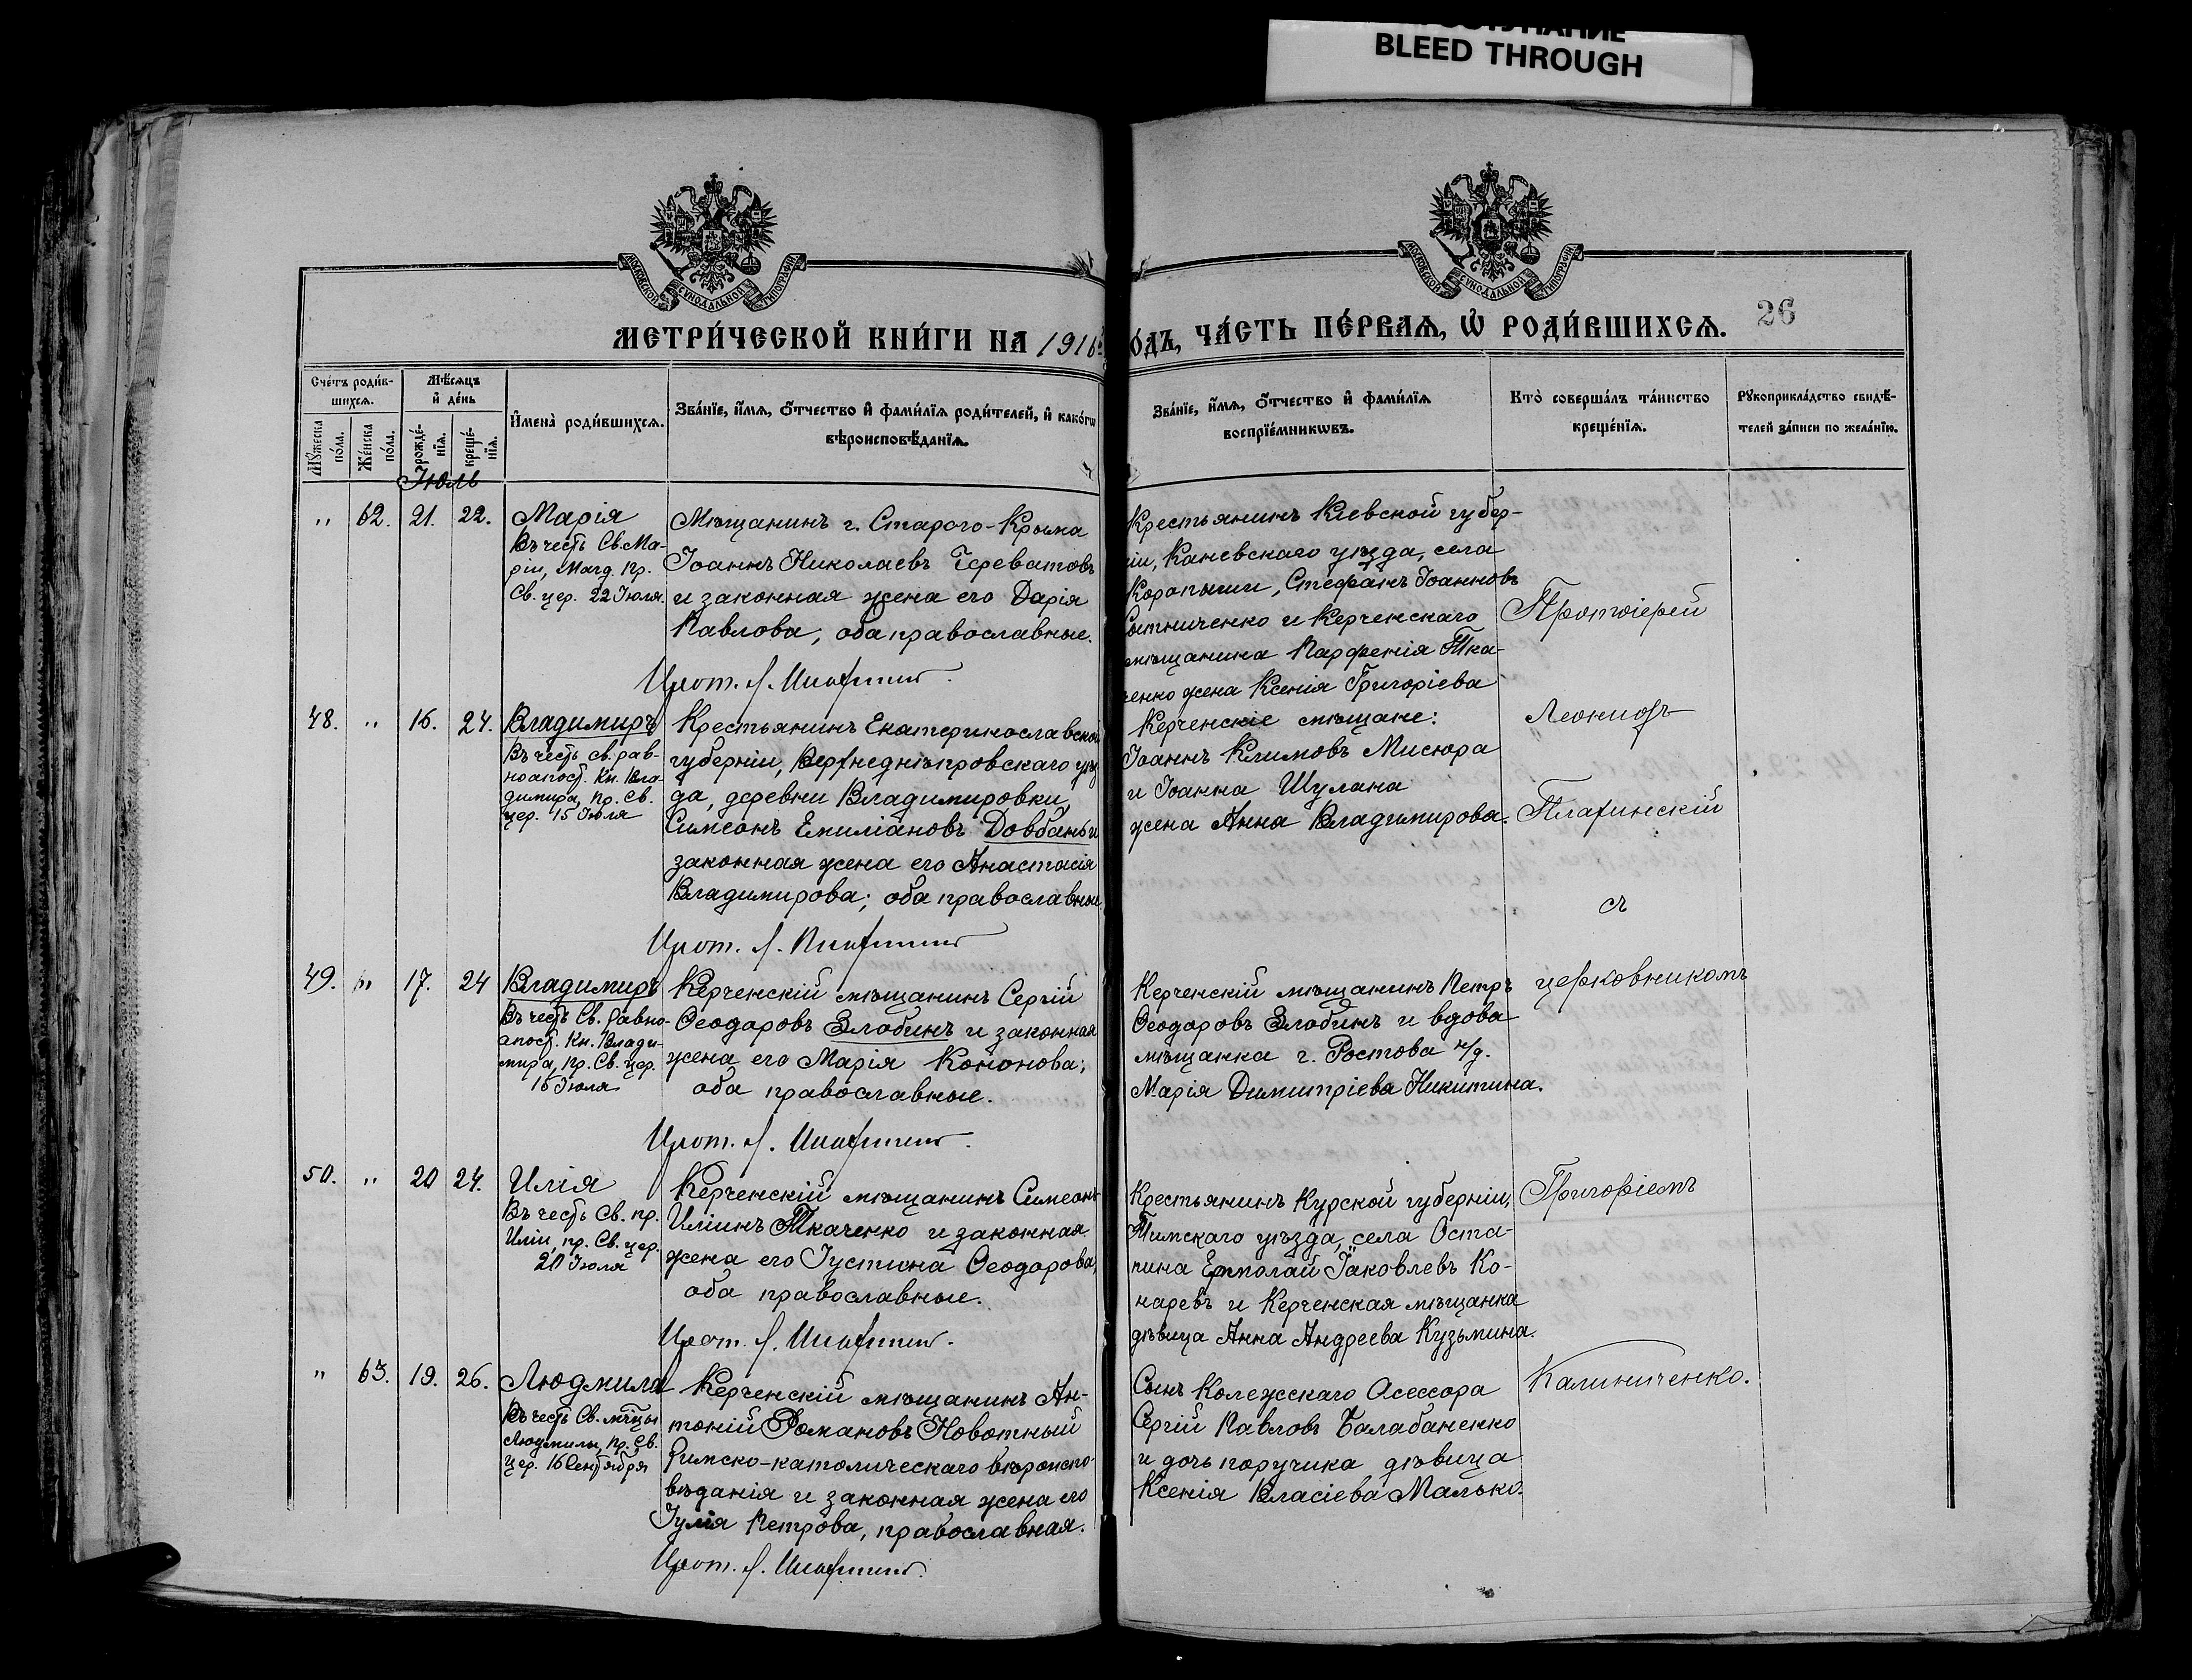 BLEED THROUGH
МОСКОВСКОЙ СѴНОДАЛЬНОЙ ТИПОГРАФІИ
МОСКОВСКОЙ СѴНОДАЛЬНОЙ ТИПОГРАФІИ
МЕТРИ́ЧЕСКОЙ КНИ́ГИ НА 1916
О́ДЪ, ЧА́СТЬ ПЕ́РВАѦ, Ѡ҆ РОДИ́ВШИХСѦ.
26
Сче́тъ роди́в-
шихсѧ.
Мꙋ́жеска
по́ла.
Же́нска
по́ла.
Мѣ́сѧцъ
и҆ де́нь
рожде́-
нїѧ.
креще́-
нїѧ.
И҆мена̀ роди́вшихсѧ.
Зва́нїе, и҆́мѧ, ѻ҆́тчество и҆ фами́лїѧ роди́телей, и҆ како́гѡ
вѣроисповѣ́данїѧ.
Зва́нїе, и҆́мѧ, ѻ҆́тчество и҆ фами́лїѧ
воспрїе́мникѡвъ.
Кто̀ соверша́лъ та́инство
креще́нїѧ.
Рꙋкоприкла́дство свидѣ́-
телей за́писи по жела́нїю.
Іюль
" 62. 21. 22. Марія
Въ честь Св. Ма-
ріи, Магд. Пр.
Св. цер. 22 Іюля.
Мѣщанинъ г. Старого-Крыма
Іоаннъ Николаевъ Череватовъ
и законная жена его Дарія
Павлова, оба православные.
Прот. Л.
Крестьянинъ Кіевской губер-
ніи, Каневскаго уѣзда, села
Коропыши, Стефанъ Іоанновъ
Сытниченко и Керченскаго
мѣщанина Парфенія Тка-
ченко жена Ксенія Григоріева
Протоіерей
48. " 16. 24. Владимиръ
Въ честь св. рав-
ноапост. Кн. Вла-
димира, пр. Св.
цер. 15 Іюля
Крестьянинъ Екатеринославской
губерніи, Верхнеднѣпровскаго уѣз
да, деревни Владимировки,
Симеонъ Емиліановъ Довбань и
законная жена его Анастасія
Владимирова; оба православные.
Прот. Л.
Керченскіе мѣщане:
Іоаннъ Климовъ Мисюра
и Іоанна Шулана
жена Анна Владимирова.
Леонидъ
Плахинскій
съ
49. " 17. 24 Владимиръ
Въ честь Св. Равно-
апост. Кн. Влади-
мира, пр. Св. цер.
15 Іюля
Керченскій мѣщанинъ Сергій
Ѳеодоровъ Злобинъ и законная
жена его Марія Кононова;
оба православные.
Прот. Л.
Керченскій мѣщанинъ Петръ
Ѳеодоровъ Злобинъ и вдова
мѣщанка г. Ростова н/д.
Марія Димитріева Никитина.
церковникомъ
50. " 20 24. Илія
Въ честь Св. пр.
Иліи, пр. Св. цер.
20 Іюля
Керченскій мѣщанинъ Симеонъ
Иліинъ Ткаченко и законная
жена его Іустина Ѳеодорова,
оба православные.
Прот. Л.
Крестьянинъ Курской губерніи,
Тимскаго уѣзда, села Оста-
пина Ермолай Іаковлевъ Ко-
наревъ и Керченская мѣщанка
дѣвица Анна Андреева Кузьмина.
Григоріемъ
" 63. 19. 26. Людмила
Въ честь Св. мч̃цы
Людмилы, Пр. Св.
цер. 16 Сентября
Керченскій мѣщанинъ Ан-
тоній Романовъ Новотный
Римско-католическаго вѣроиспо-
вѣданія и законная жена его
Іулія Петрова, православная.
Прот. Л.
Сынъ Колежсскаго Асессора
Сергій Павловъ Балабаненко
и дочь поручика дѣвица
Ксенія Власіева Малько.
Калиниченко.